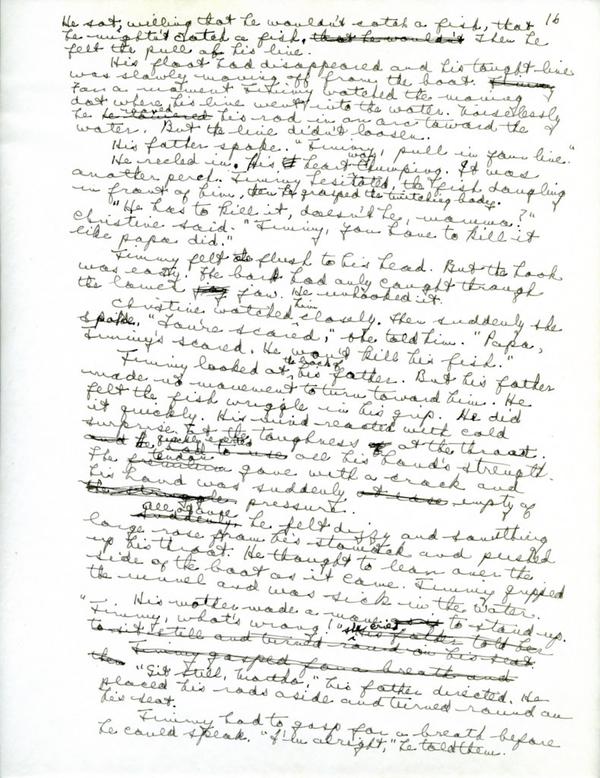 16
He sat, willing that he wouldn't catch a fish, that
he mightn't catch a fish, that he wouldn't Then he
felt the pull of his line.
His float had disappeared and his taught line
was slowly moving off from the boat. Timmy
For a moment Timmy watched the moving
dot where his line went into the water. Noiselessly
he moved his rod in an arc toward the
water. But the line didn't loosen.
His father spoke. "Timmy, pull in your line."
He reeled in, his heart was thumping. It was
another perch. Timmy hesitated, the fish dangling
in front of him, then he grasped the twitching body.
"He has to kill it, doesn't he, mamma?"
Christine said. "Timmy, you have to kill it
like papa did."
Timmy felt the flush to his head. But the hook
was easy. The barb had only caught through
the lower jaw. He unhooked it.
Christine watched him closely. Then suddenly she
spoke. "You're scared," she told him. "Papa,
Timmy's scared. He won't kill his fish."
Timmy looked at the back of his father. But his father
made no movement to turn toward him. He
felt the fish wriggle in his grip. He did
it quickly. His mind reacted with cold
surprise at the toughness at the throat.
all his hand's strength.
The tendon gave with a crack and
his hand was suddenly empty of
the struggle pressure.
all at once
Suddenly he felt dizzy and something
large rose from his stomach and pushed
up his throat. He thought to lean over the
side of the boat as it came. Timmy gripped
the gunnel and was sick in the water.
His mother made a move to stand up.
"Timmy, what's wrong!" she cried His father told her
to sit still and turned round on his seat.
Timmy gasped for a breath and
then "Sit still, Martha," his father directed. He
placed his rods aside and turned round on
his seat.
Timmy had to gasp for a breath before
he could speak. "I'm alright," he told them.